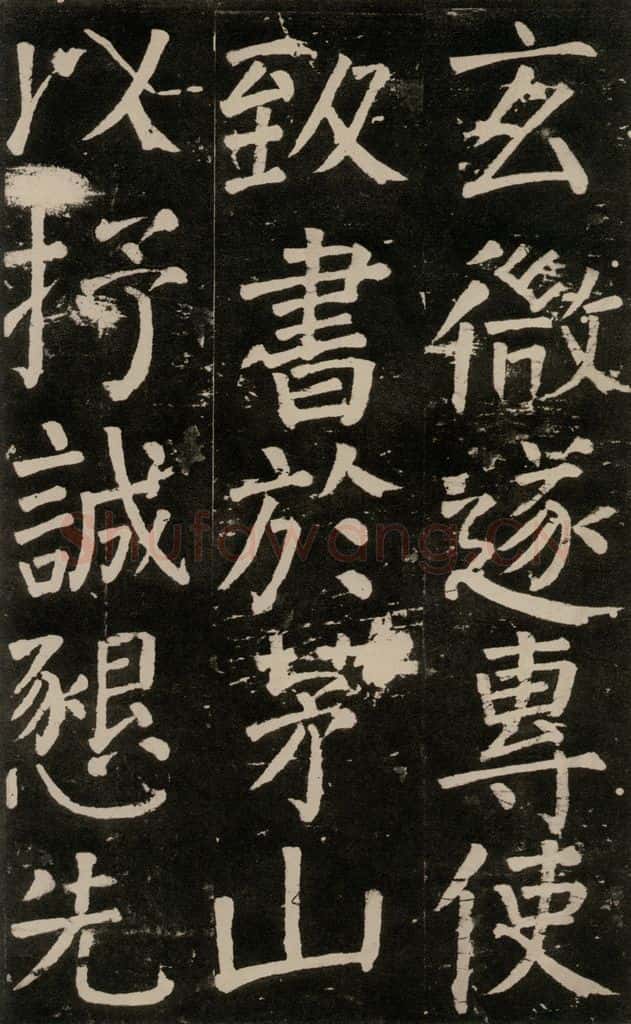 玄微遂專使
致書於茅山
以抒誠懇先
Shufawang.cn